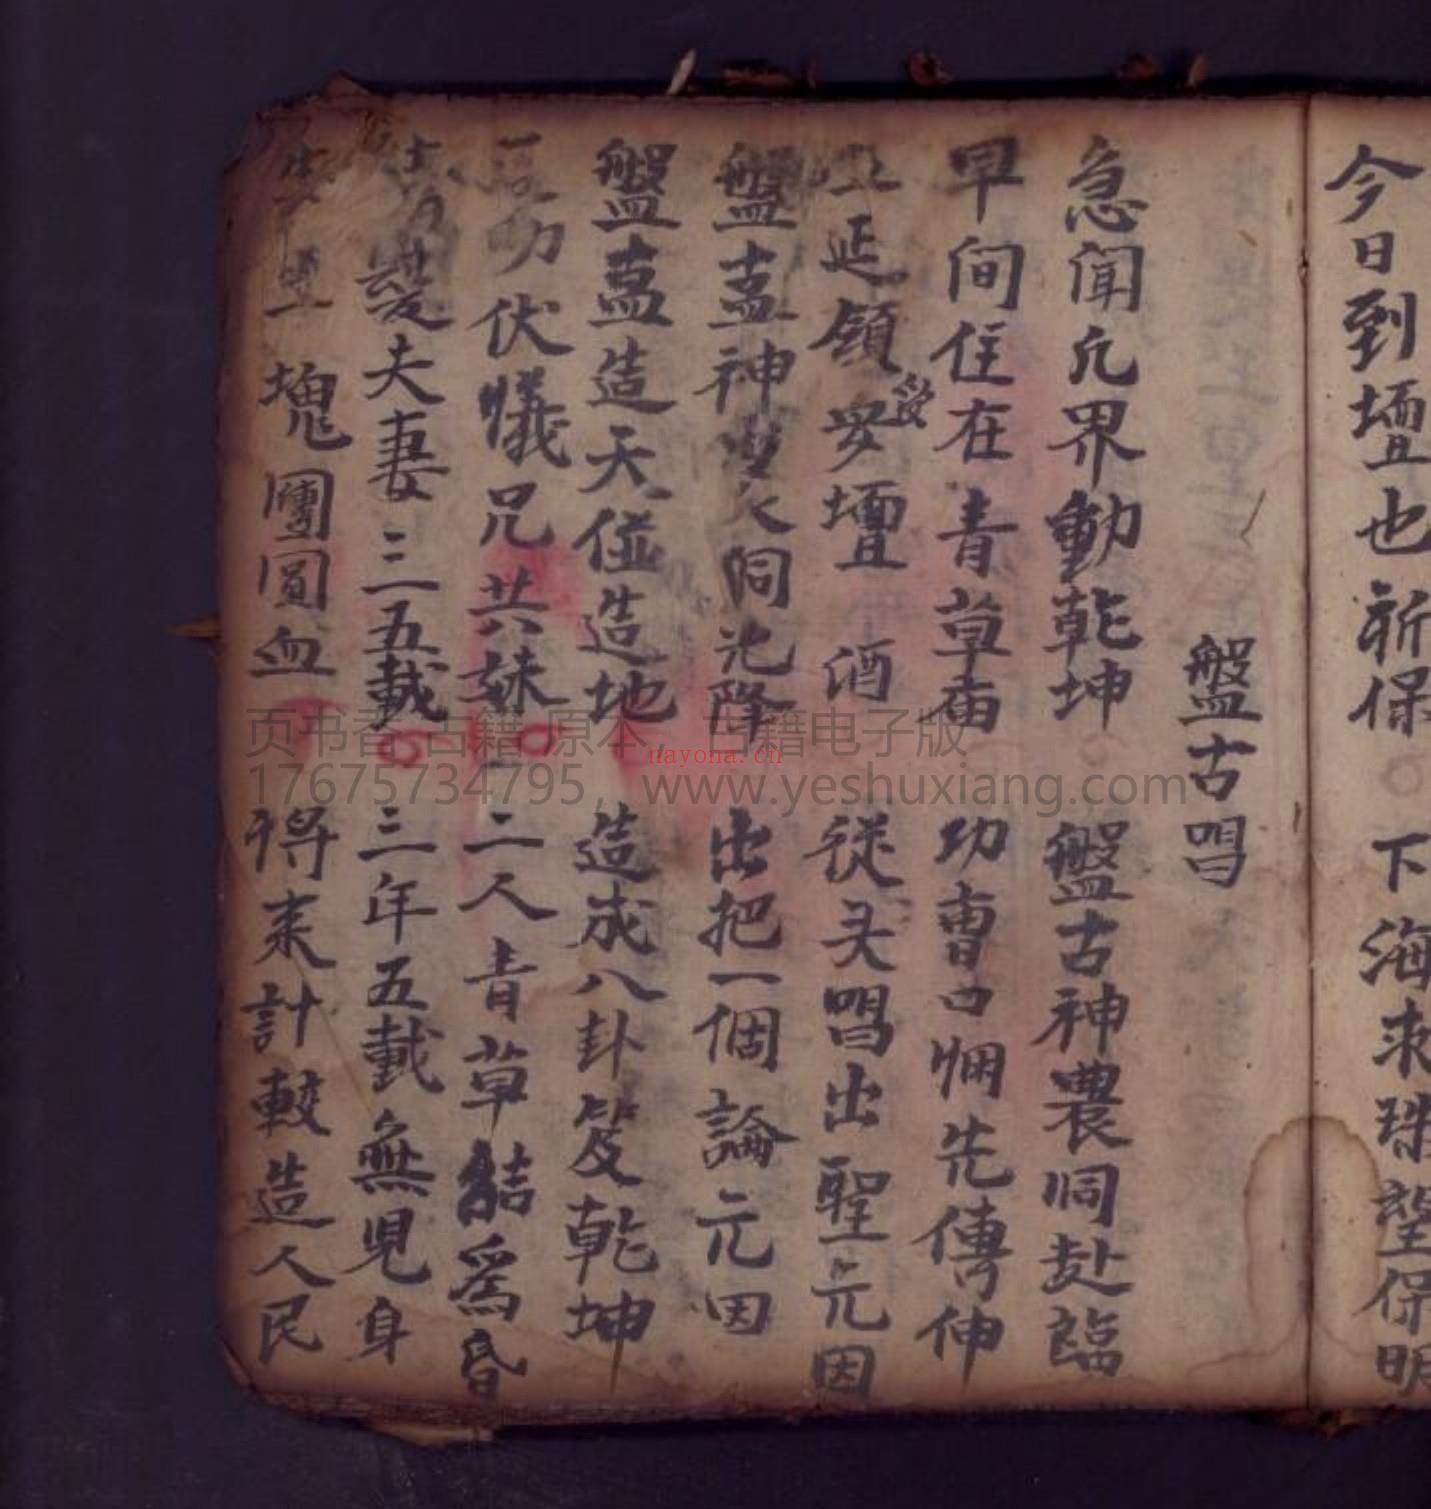 今日到壇也新保 下海求珠望保明
盤古唱
急聞凢界動乾坤 盤古神農洞赴臨
早间住在青草庙 功曹口惘先傳伸
延領安壇酒 從头唱出聖元因
盤盖神 洞光降 出把一個論元因
盤盖造天俓造地 造成八卦笈乾坤
功伏犠兄共妹 二人青草結爲昏
髪夫妻三五載 三年五載無児身
塊團圓血 将来計較造人民
页书香 古籍 原本 古籍电子版
nayona.cn
17675734795, www.yeshuxiang.com